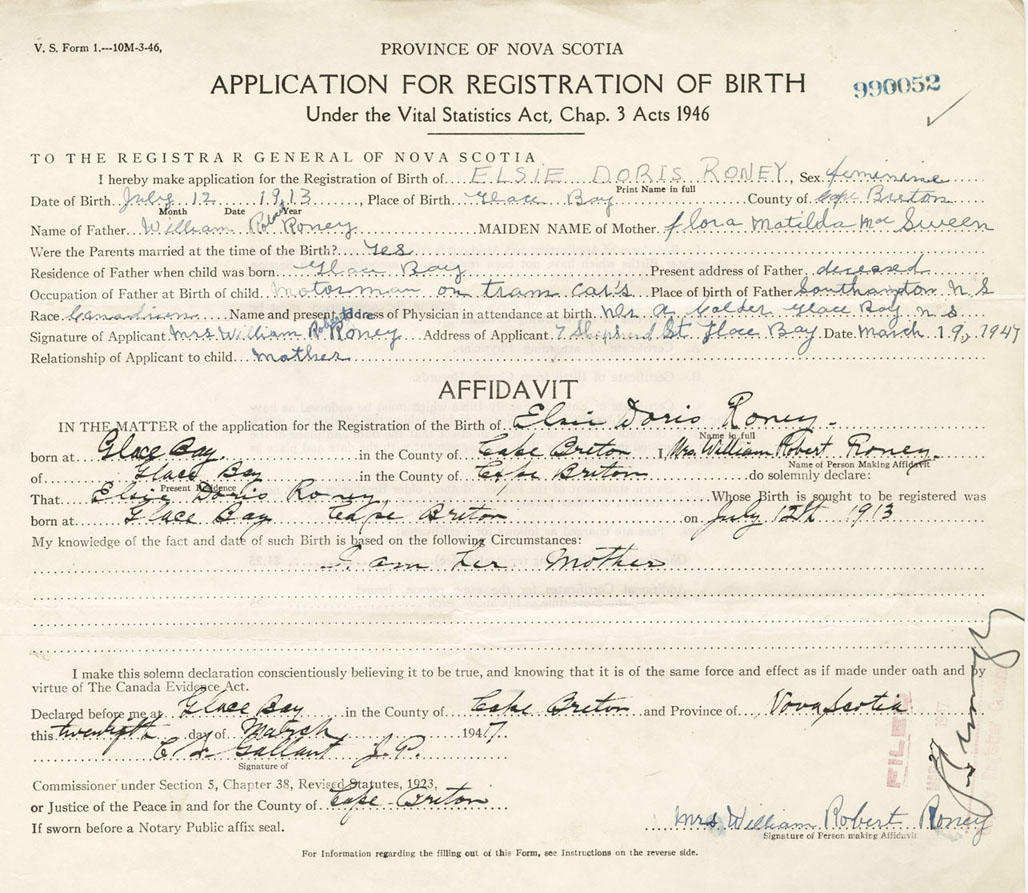 V. S. Form 1.---10M-3-46,
PROVINCE OF NOVA SCOTIA
APPLICATION FOR REGISTRATION OF BIRTH
990052
Under the Vital Statistics Act, Chap. 3 Acts 1946
TO THE REGISTRAR GENERAL OF NOVA SCOTIA
I hereby make application for the Registration of Birth of ELSIE DORIS RONEY, Sex feminine
Print Name in full
Date of Birth July 12 1913, Place of Birth Glace Bay County of Cape Breton
Month Date Year
Name of Father William Robert Roney MAIDEN NAME of Mother flora Matilda Mac Sween
Were the Parents married at the time of the Birth? Yes
Residence of Father when child was born Glace Bay Present address of Father deceased
Occupation of Father at Birth of child Motorman on tram car's Place of birth of Father Southampton N S
Race Canadian Name and present address of Physician in attendance at birth A Calder Glace Bay n s
Signature of Applicant Mrs William Robert Roney Address of Applicant 7 St Glace Bay Date March 19, 1947
Relationship of Applicant to child Mother
AFFIDAVIT
IN THE MATTER of the application for the Registration of the Birth of Elsie Doris Roney.
Name in full
born at Glace Bay in the County of Cape Breton I, Mrs. William Robert Roney.
Name of Person Making Affidavit
of Glace Bay in the County of Cape Breton do solemnly declare:
Present Residence
That Elsie Doris Roney Whose Birth is sought to be registered was
born at Glace Bay Cape Breton on July 12th 1913
My knowledge of the fact and date of such Birth is based on the following Circumstances:
I am her Mother
I make this solemn declaration conscientiously believing it to be true, and knowing that it is of the same force and effect as if made under oath and by
virtue of The Canada Evidence Act.
Declared before me at Glace Bay in the County of Cape Breton and Province of Nova Scotia
this day of March 1947.
Gallant J.P.
Signature of
Commissioner under Section 5, Chapter 38, Revised Statutes, 1923,
or Justice of the Peace in and for the County of Cape Breton
If sworn before a Notary Public affix seal.
FILED
Mrs William Robert Roney
Signature of Person making Affidavit
For Information regarding the filling out of this Form, see Instructions on the reverse side.